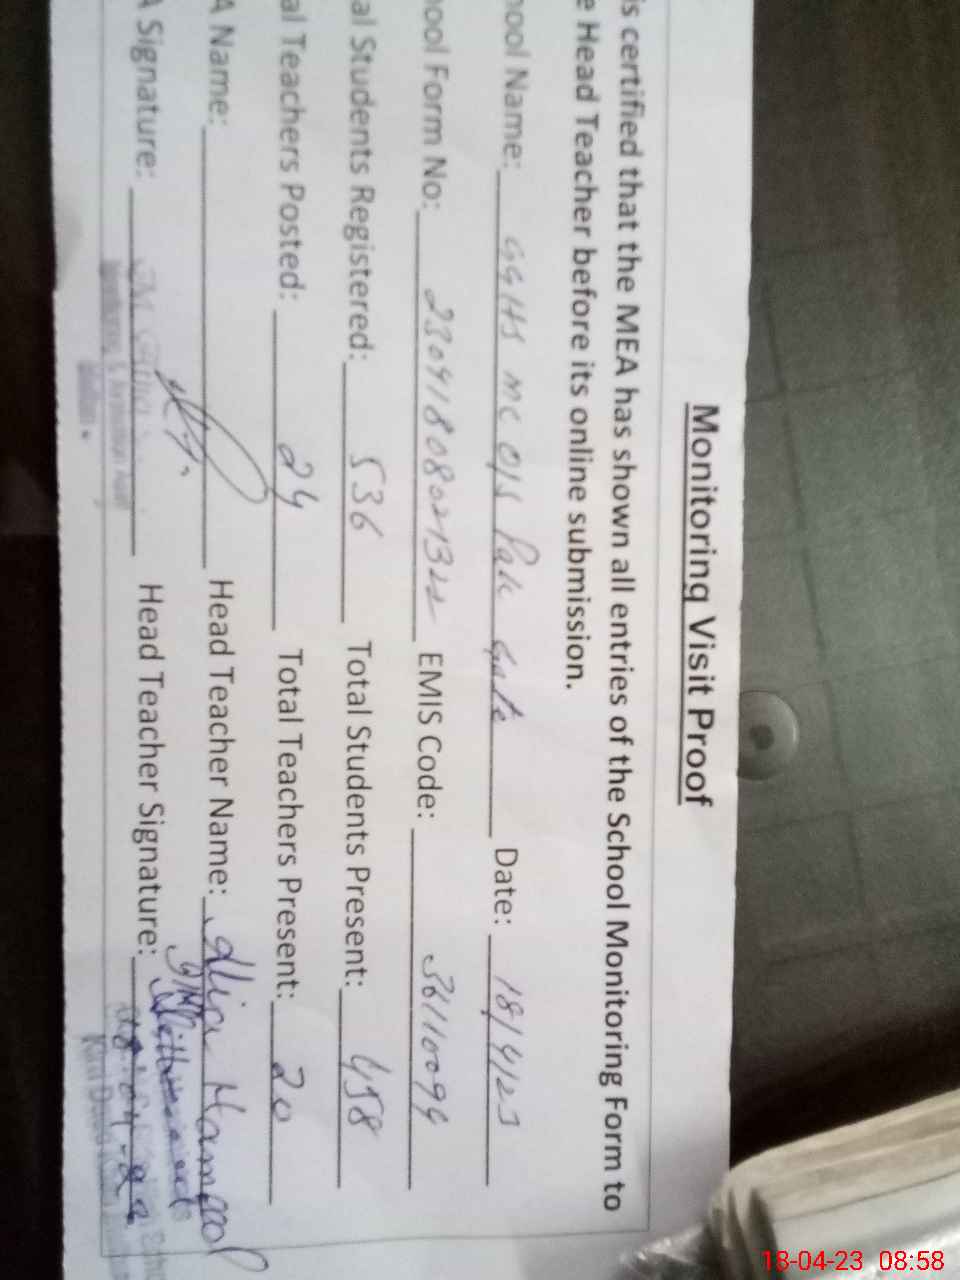 Monitoring Visit Proof
is certified that the MEA has shown all entries of the School Monitoring Form to
e Head Teacher before its online submission.
hool Name: GGHS MC O/S Pak Gate Date: 18/4/23
hool Form No: EMIS Code: 36110099
al Students Registered: 536 Total Students Present: 458
al Teachers Posted: 24 Total Teachers Present: 20
A Name: Head Teacher Name: Alia
A Signature: Head Teacher Signature:
18-04-23 08:58